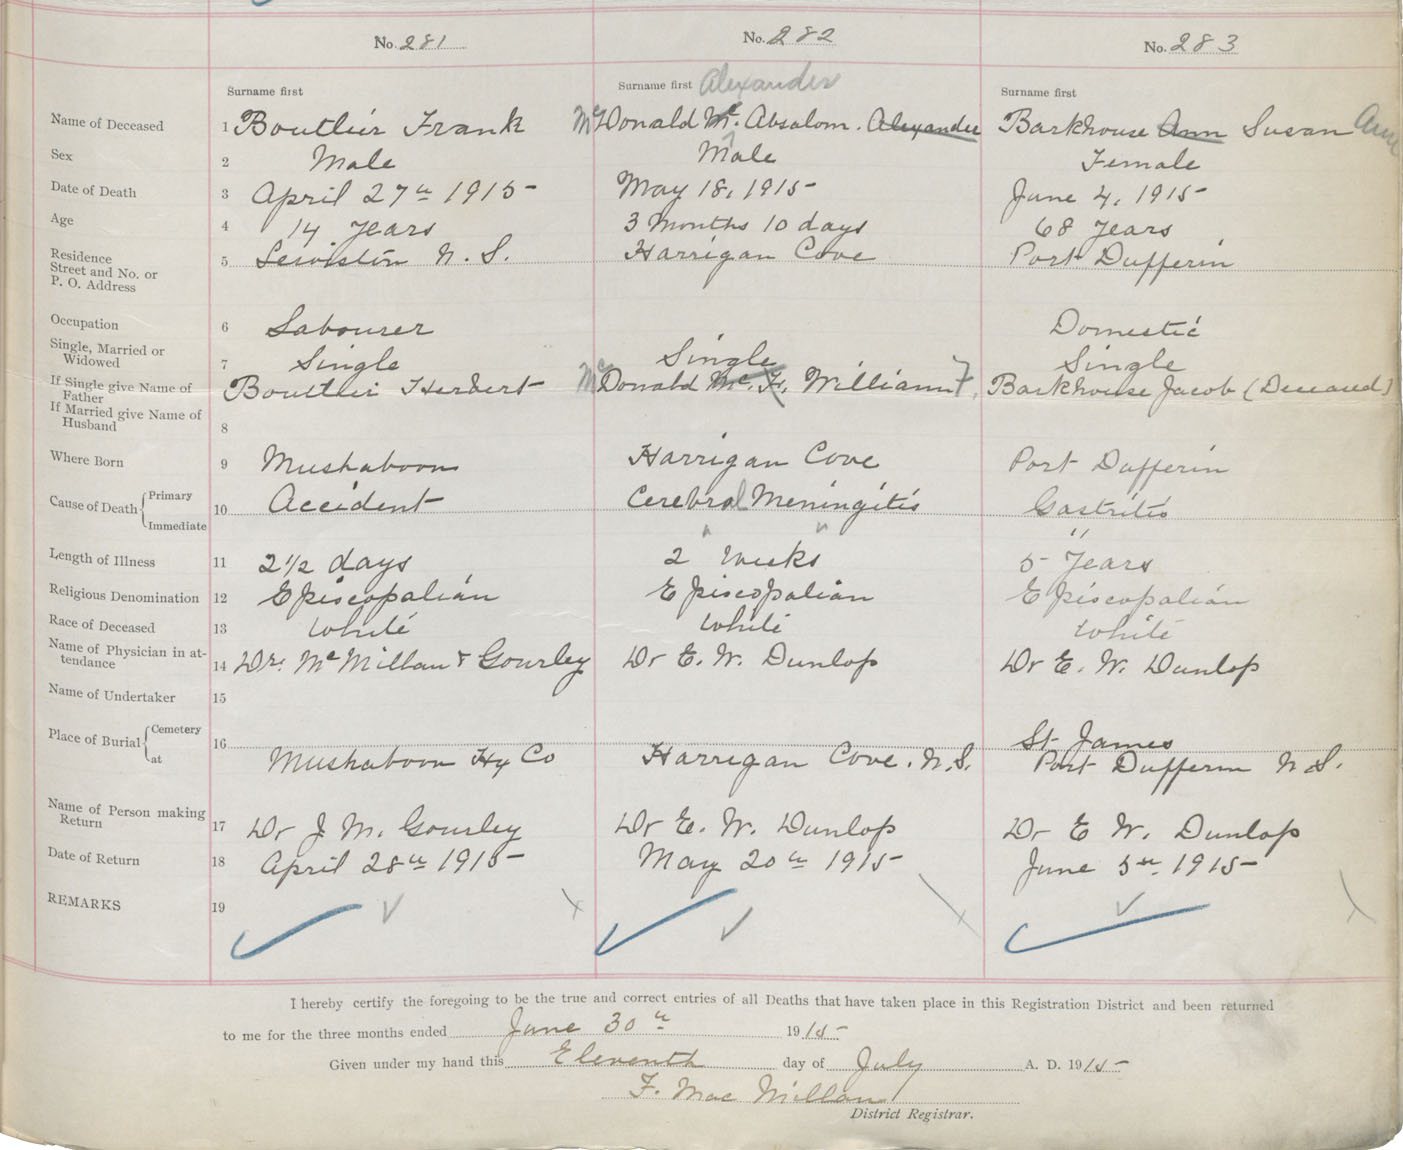 No. 281 No. 282 No. 283
Surname first Surname first Alexander Surname first
Name of Deceased 1 Boutlier Frank McDonald Mc. Absalom. Alexander Barkhouse Ann Susan Ann
Sex 2 Male Male Female
Date of Death 3 April 27th 1915 May 18, 1915 June 4, 1915
Age 4 14 Years 3 Months 10 days 68 Years
Residence
Street and No. or 5 Lewiston N. S. Harrigan Cove Port Dufferin
P. O. Address
Occupation 6 Labourer Domestic
Single, Married or
Widowed 7 Single Single Single
If Single give Name of
Father Boutlier Herbert McDonald Mc. F. William F. Barkhouse Jacob (Deceased)
If Married give Name of
Husband 8
Where Born 9 Mushaboon Harrigan Cove Port Dufferin
Cause of Death { Primary
Immediate 10 Accident Cerebral Meningitis Gastritis
" " "
Length of Illness 11 2 1/2 days 2 weeks 5 Years
Religious Denomination 12 Episcopalian Episcopalian Episcopalian
Race of Deceased 13 White White White
Name of Physician in at-
tendance 14 Drs. McMillan & Gourley Dr E. W. Dunlop Dr E. W. Dunlop
Name of Undertaker 15
Place of Burial { Cemetery 16 St James
at Mushaboon Hx Co Harrigan Cove. N.S. Port Dufferin N.S.
Name of Person making
Return 17 Dr J M. Gourley Dr E. W. Dunlop Dr E W. Dunlop
Date of Return 18 April 28th 1915 May 20th 1915 June 5th 1915
REMARKS 19
I hereby certify the foregoing to be the true and correct entries of all Deaths that have taken place in this Registration District and been returned
to me for the three months ended June 30th 1915
Given under my hand this Eleventh day of July A. D. 1915
F. Mac Millan
District Registrar.